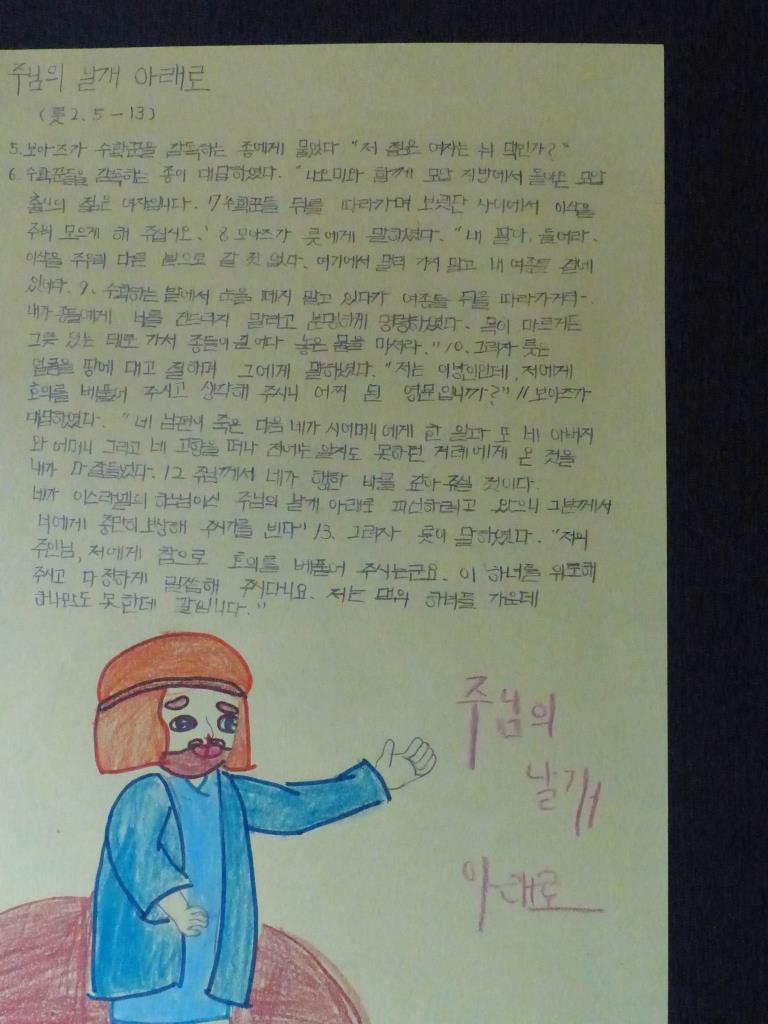 주님의 날개 아래로
(룻2. 5-13)
5. 보아즈가 수확꾼을 감독하는 종에게 물었다. "저 젊은 여자는 뉘 댁인가?"
6. 수확꾼들을 감독하는 종이 대답하였다. "나오미와 함께 모압 지방에서 돌아온 모압
출신의 젊은 여자입니다. 7 수확꾼들 뒤를 따라가며 보릿단 사이에서 이삭을
주워 모으게 해 주십시오.' 8 보아즈가 룻에게 말하였다. "내 딸아, 들어라.
이삭을 주우러 다른 밭으로 갈 것 없다. 여기에서 멀리 가지 말고 내 여종들 곁에
있어라. 9. 수확하는 밭에서 눈을 떼지 말고 있다가 여종들 뒤를 따라가거라.
내가 종들에게 너를 건드리지 말라고 분명하게 명령하였다. 목이 마르거든
그릇 있는 데로 가서 종들이 길어다 놓은 물을 마셔라." 10. 그러자 룻는
얼굴을 땅에 대고 절하며 그에게 말하였다. "저는 이방인인데, 저에게
호의를 베풀어 주시고 생각해 주시니 어찌 된 영문입니까?" 11 보아즈가
대답하였다. "네 남편이 죽은 다음 네가 시어머니에게 한 일과 또 네 아버지
와 어머니 그리고 네 고향을 떠나 전에는 알지도 못하던 겨레에게 온 것을
내가 다 잘들었다. 12 주님께서 네가 행한 바를 갚아 주실 것이다.
네가 이스라엘의 하느님이신 주님의 날개 아래로 피신하려고 왔으니 그분께서
너에게 충만히 보상해 주시기를 빈다" 13. 그러자 룻이 말하였다. "저의
주인님, 저에게 참으로 호의를 베풀어 주시는군요. 이 하녀를 위로해
주시고 다정하게 말씀해 주시다니요. 저는 댁의 하녀들 가운데
하나만도 못한데 말입니다."
주님의
날개
아래로